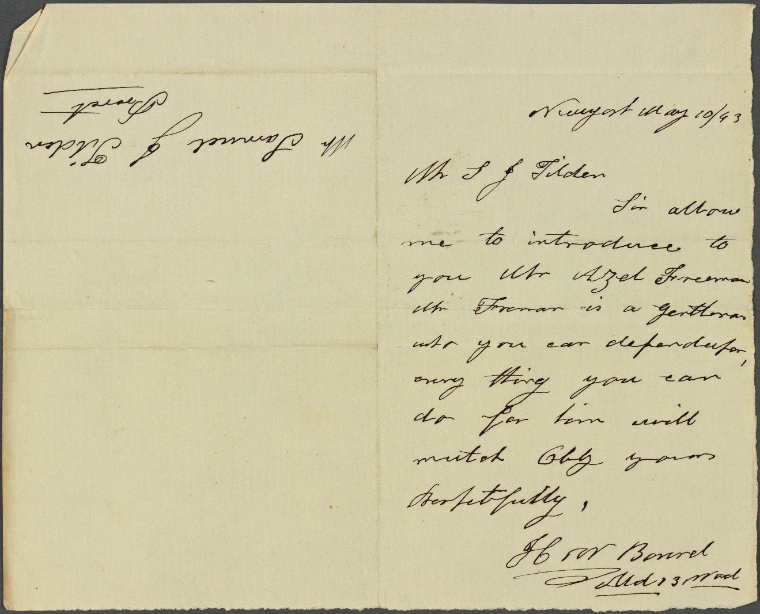 Newyork May 10/43
Mr S J Tilden
Sir allow
me to introduce to
you Mr Azel Freeman
Mr Freman is a gentleman
who you can depend upon,
enny thing you can
do for him will
mutch Oblg yours
Respetfully,
H W Bonnel
Ald 13 Ward
Mr Samuel J Tilden
Preset